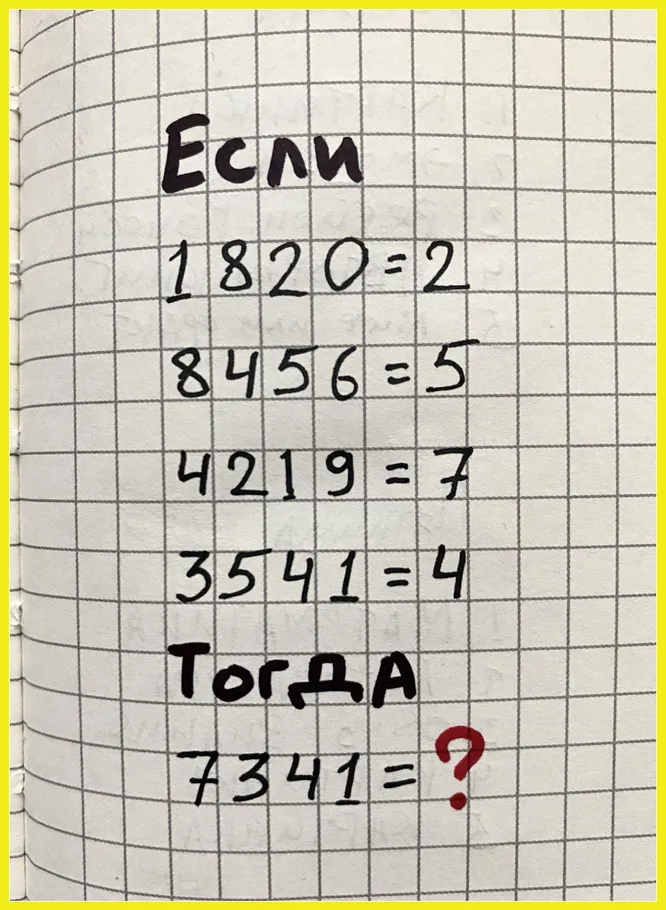 Если
1820=2
8456=5
4219=7
3541=4
Тогда
7341=?